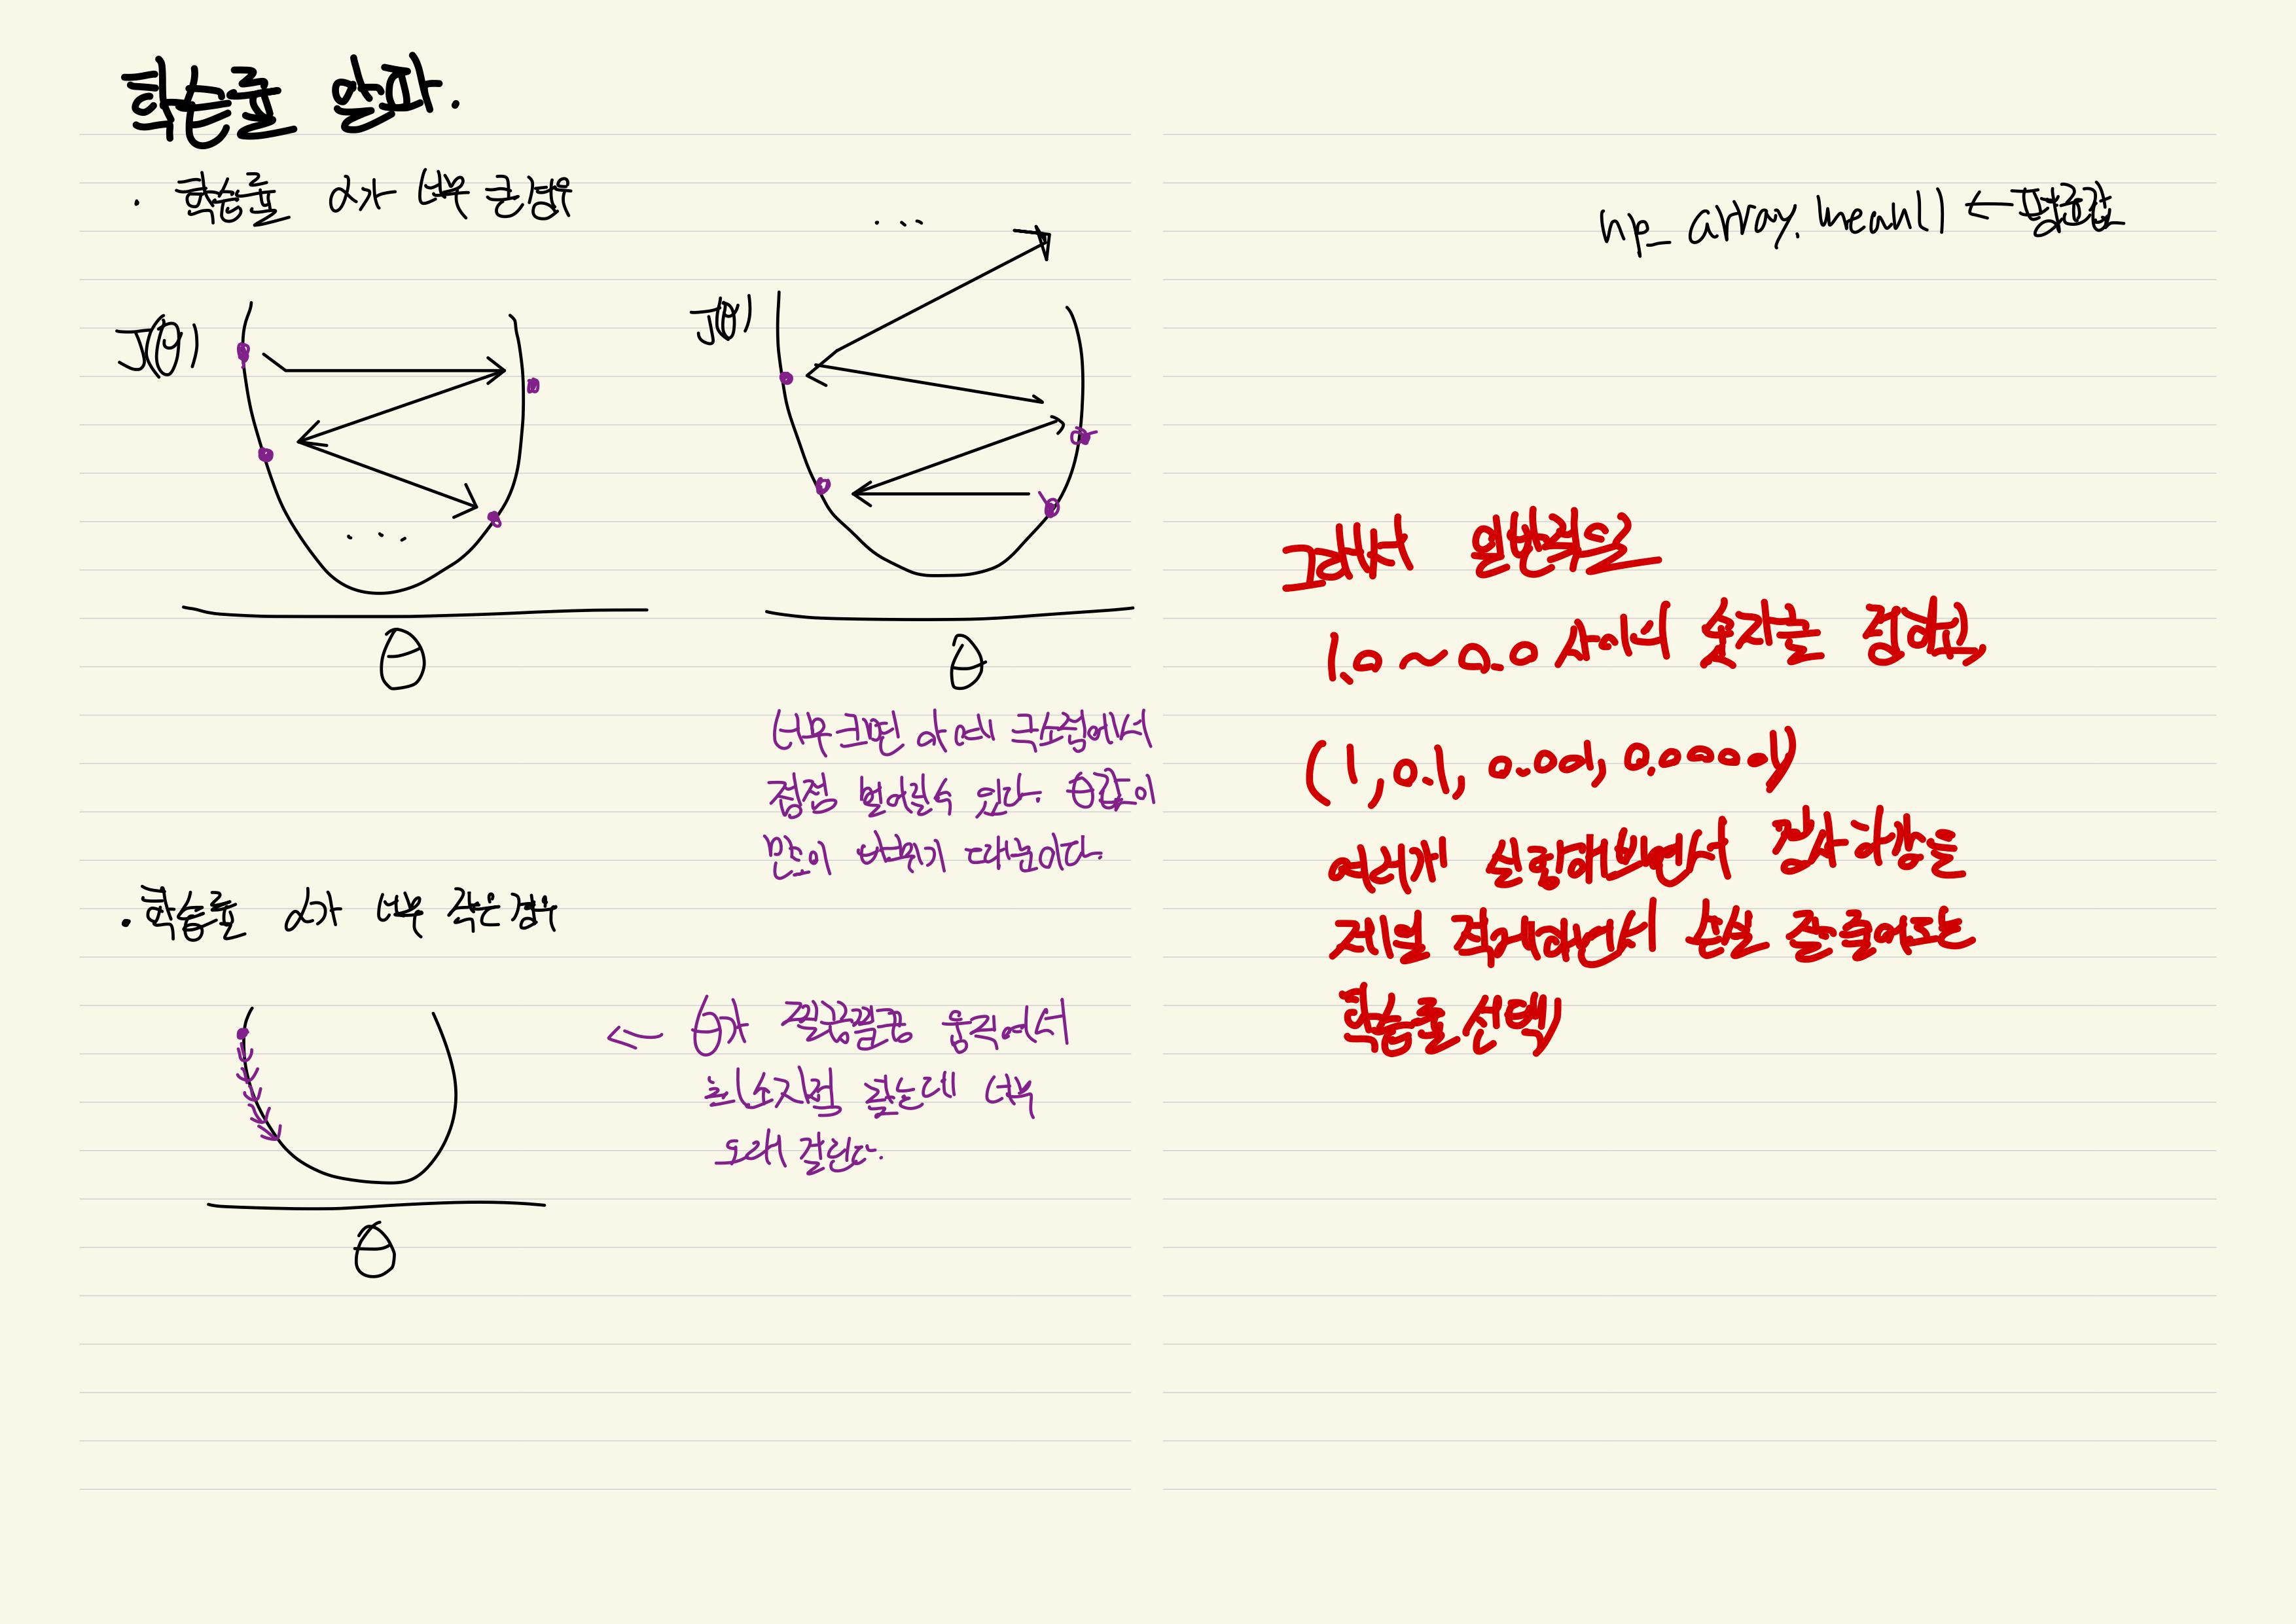 학습률 알파.
· 학습률 α가 너무 큰 경우
...
J(θ)
J(θ)
...
θ
θ
너무 크면 아예 극소점에서
점점 멀어질수 있다. θ값이
많이 바뀌기 때문이다.
· 학습률 α가 너무 작은 경우
← θ가 찔끔찔끔 움직여서
최소지점 찾는데 너무
오래 걸린다.
θ
np_array.mean() ← 평균값
그래서 일반적으로
1.0 ~ 0.0 사이의 숫자를 정하고,
(1, 0.1, 0.001, 0.00001)
여러개 실험해보면서 경사하강을
제일 적게하면서 손실 잘 줄어드는
학습률 선택